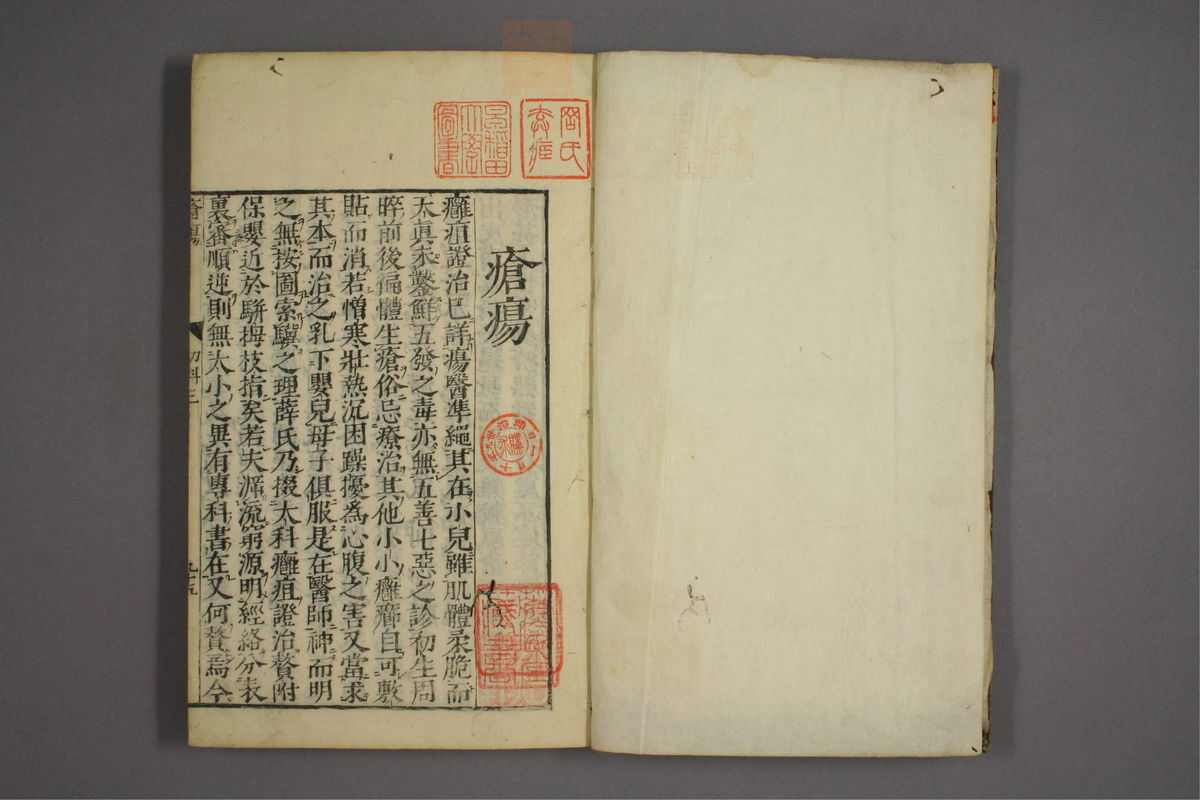 瘡瘍
癰疽證治已詳瘍醫凖繩其在小兒雖肌體柔脆而
太真未鑿鮮五發之毒亦無五善七惡之診初生周
晬前後徧體生瘡俗忌療治其他小小癰癤自可敷
貼而消若憎寒壯熱沉困躁擾爲心腹之害又當求
其本而治之乳下嬰兒母子俱服是在醫師神而明
之無按圖索驥之理薛氏乃掇太科癰疽證治贅附
保嬰近於駢拇枝指矣若夫㴑流窮源明經絡分表
裏審順逆則無大小之異有專科書在又何贅焉今
瘡瘍
幼科三
九十五
早稻田
大學
圖書